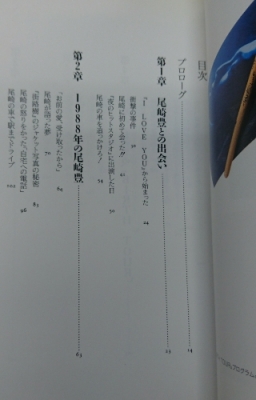 目次
プロローグ
第1章 尾崎豊との出会い
「I LOVE YOU」から始まった
衝撃の事件
尾崎に初めて会った!!
「夜のヒットスタジオ」に出演した日
尾崎の車を追っかけろ!
第2章 1988年の尾崎豊 63
「お前の愛、受け取ったから」
尾崎が語った夢
「街路樹」のジャケット写真の秘密
尾崎の怒りをかった、自宅への電話
尾崎の車で駅までドライブ